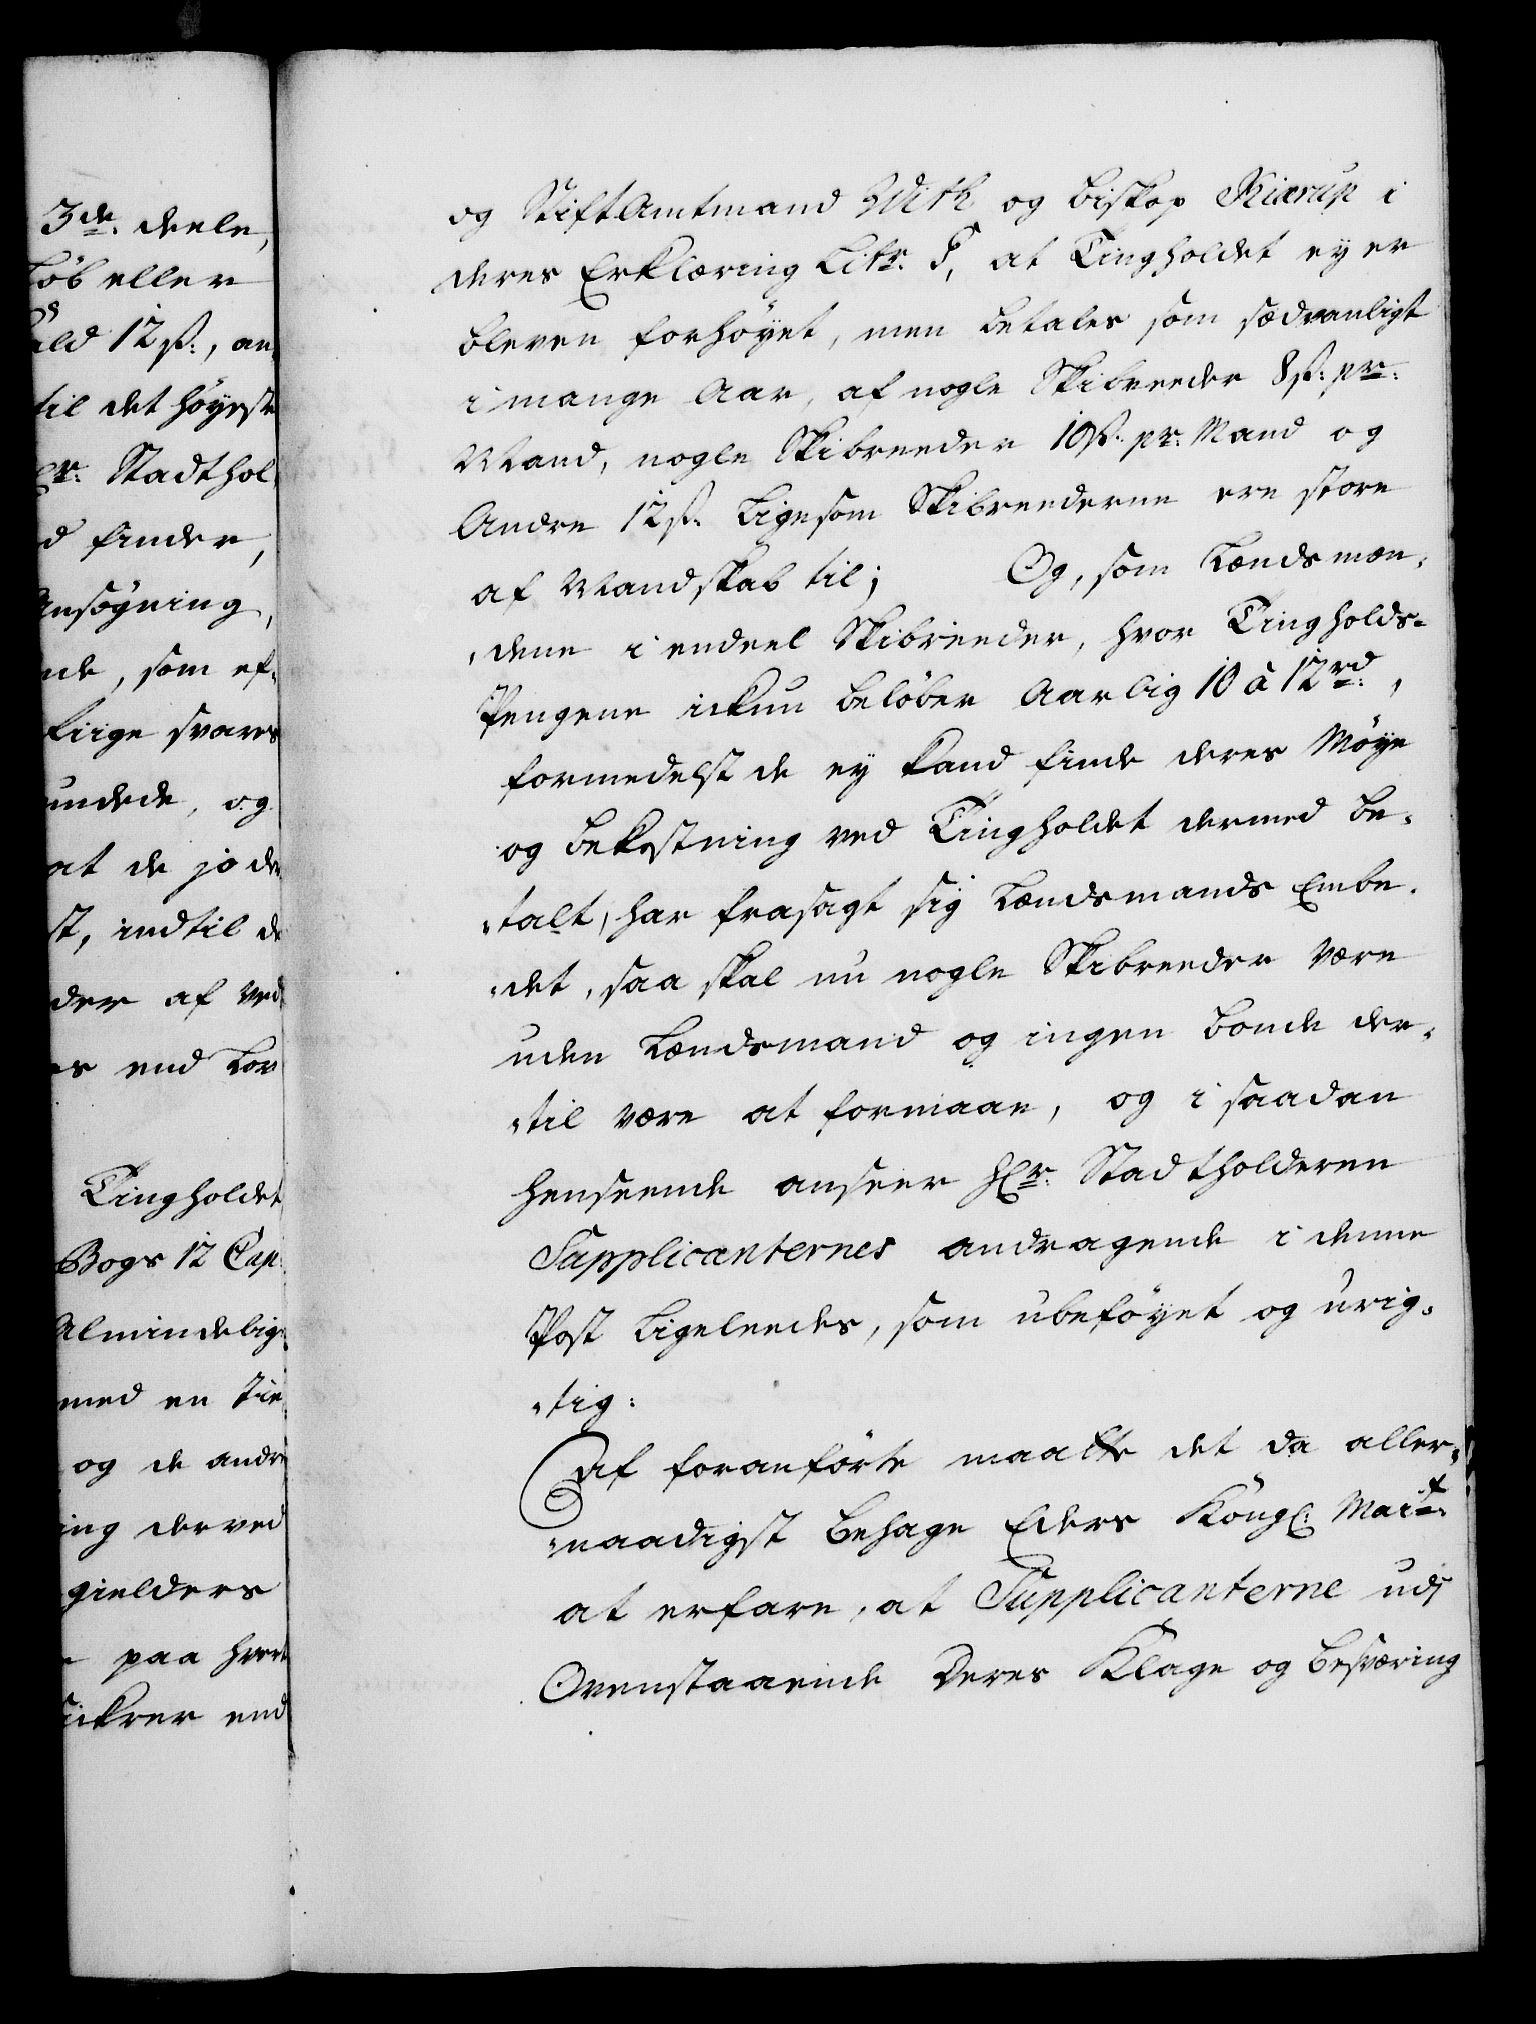 3de. deele,
løb eller
ald 12 ß:, an
til det høyeste
Hr: Stadthol
d finder,
Ansøgning,
nde, som ef,
liige svares
undede, og
at de jo der
st, indtil de
der af ved
es end Lov
Tingholdet
Bogs 12 Cap:
Almindelig,
med en Tie
og de andre
ing derved
gielders
paa hvert
sickrer end
og StiftAmtmand With og Biskop Kiærup i
deres Erklæring Litr. F, at Tingholdet ey er
bleven forhøyet, men betales som sædvanligt
i mange Aar, af nogle Skibreeder 8 ß: pr:
Mand, nogle Skibreeder 10 ß. pr: Mand og
Andre 12 ß. ligesom Skibreederne ere store
af Mandskab til; Og, som Lændsmæn,
,dene i endeel Skibreeder, hvor Tingholds-
Pengene ickun beløber Aarlig 10 à 12 rd:,
formedelst de ey kand finde deres Møye
og bekostning ved Tingholdet dermed be,
,talt, har frasagt sig Lændsmands Embe,
,det, saa skal nu nogle Skibreeder være
uden Lændsmand og ingen bonde der,
,til være at formaae, og i saadan
henseende anseer Hr: Stadtholderen
Supplicanternes andragende i denne
Post ligeleedes, som ubeføyet og urig,
,tig:
Af foranførte maatte det da aller,
,naadigst behage Eders Kongl: Mait:
at erfare, at Supplicanterne udj
Ovenstaaende Deres Klage og besværing